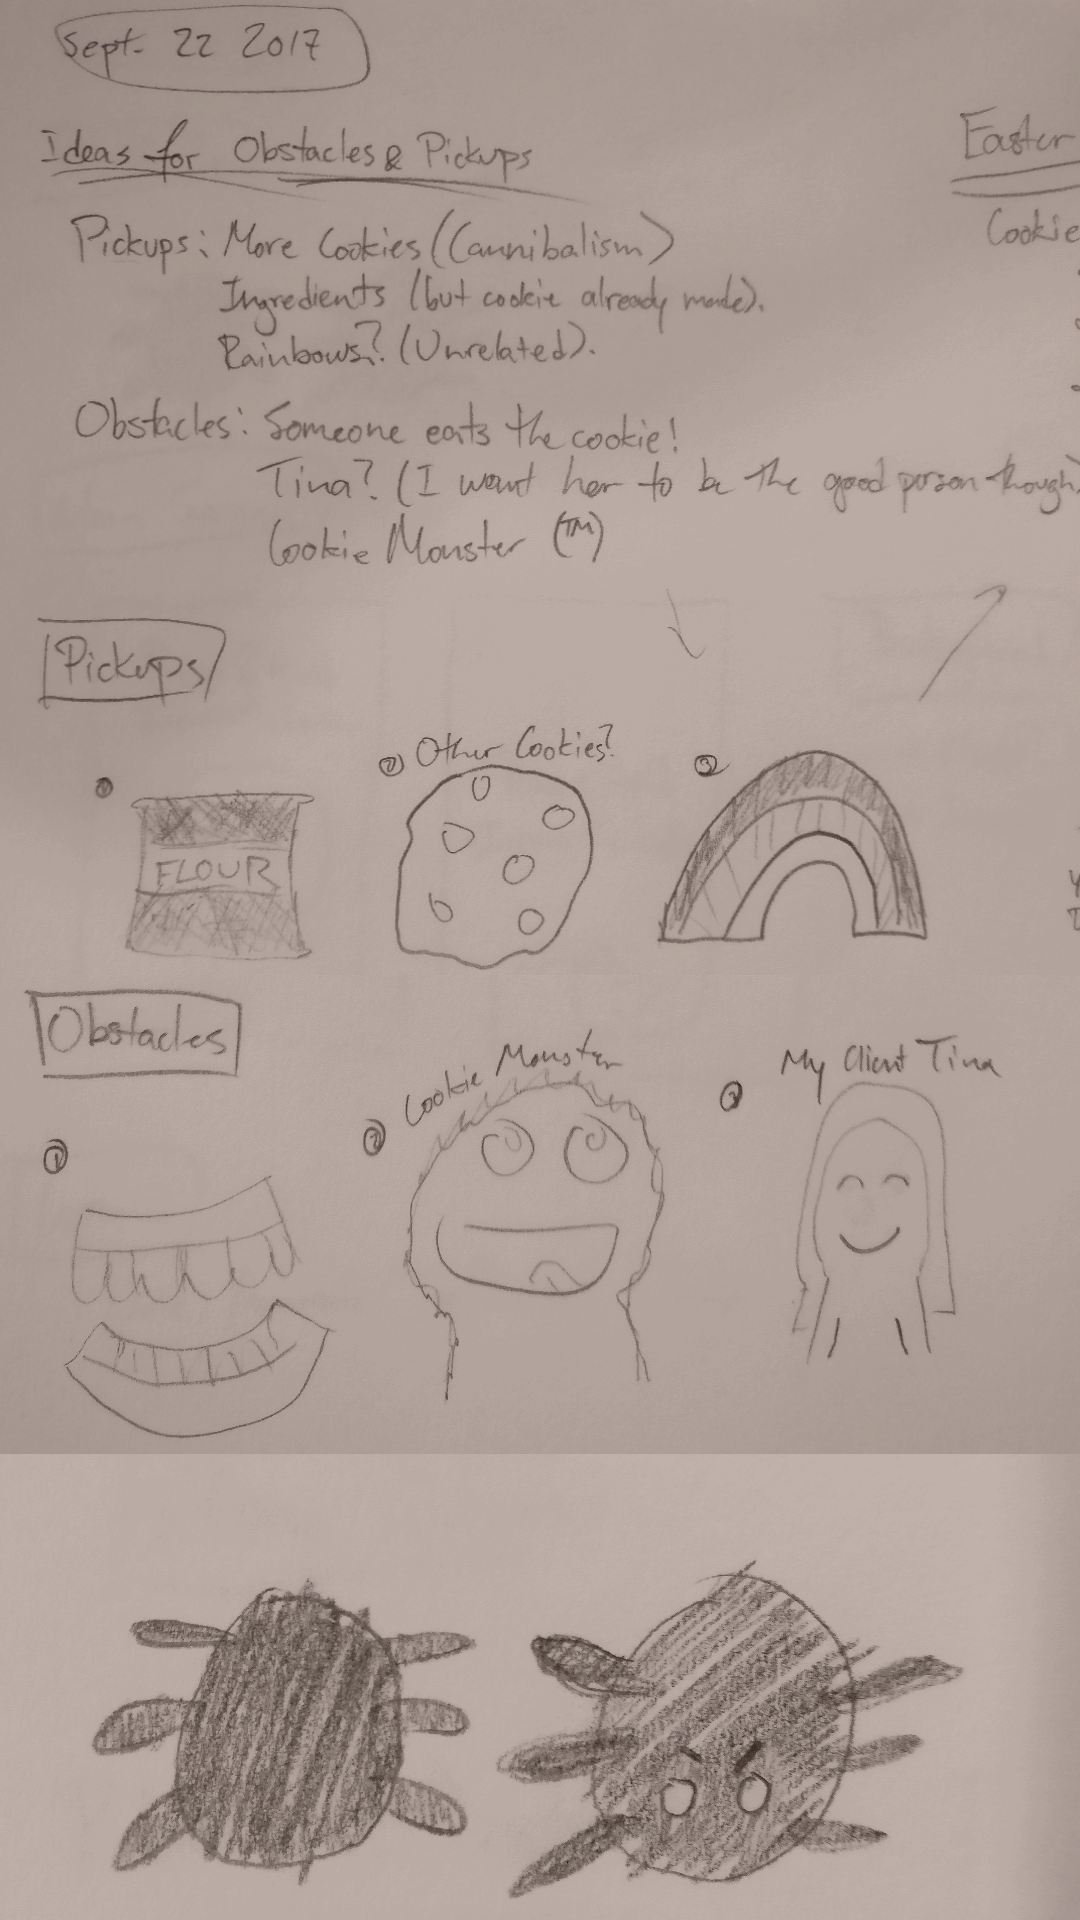 Sept. 22 2017
Ideas for Obstacles & Pickups
Easter
Pickups: More Cookies (Cannibalism)
Cookie
Ingredients (but cookie already made).
Rainbows? (Unrelated).
Obstacles: Someone eats the cookie!
Tina? (I want her to be the good person though)
Cookie Monster (TM)
Pickups
① 
② Other Cookies?
③
FLOUR
Obstacles
①
② Cookie Monster
③ My Client Tina